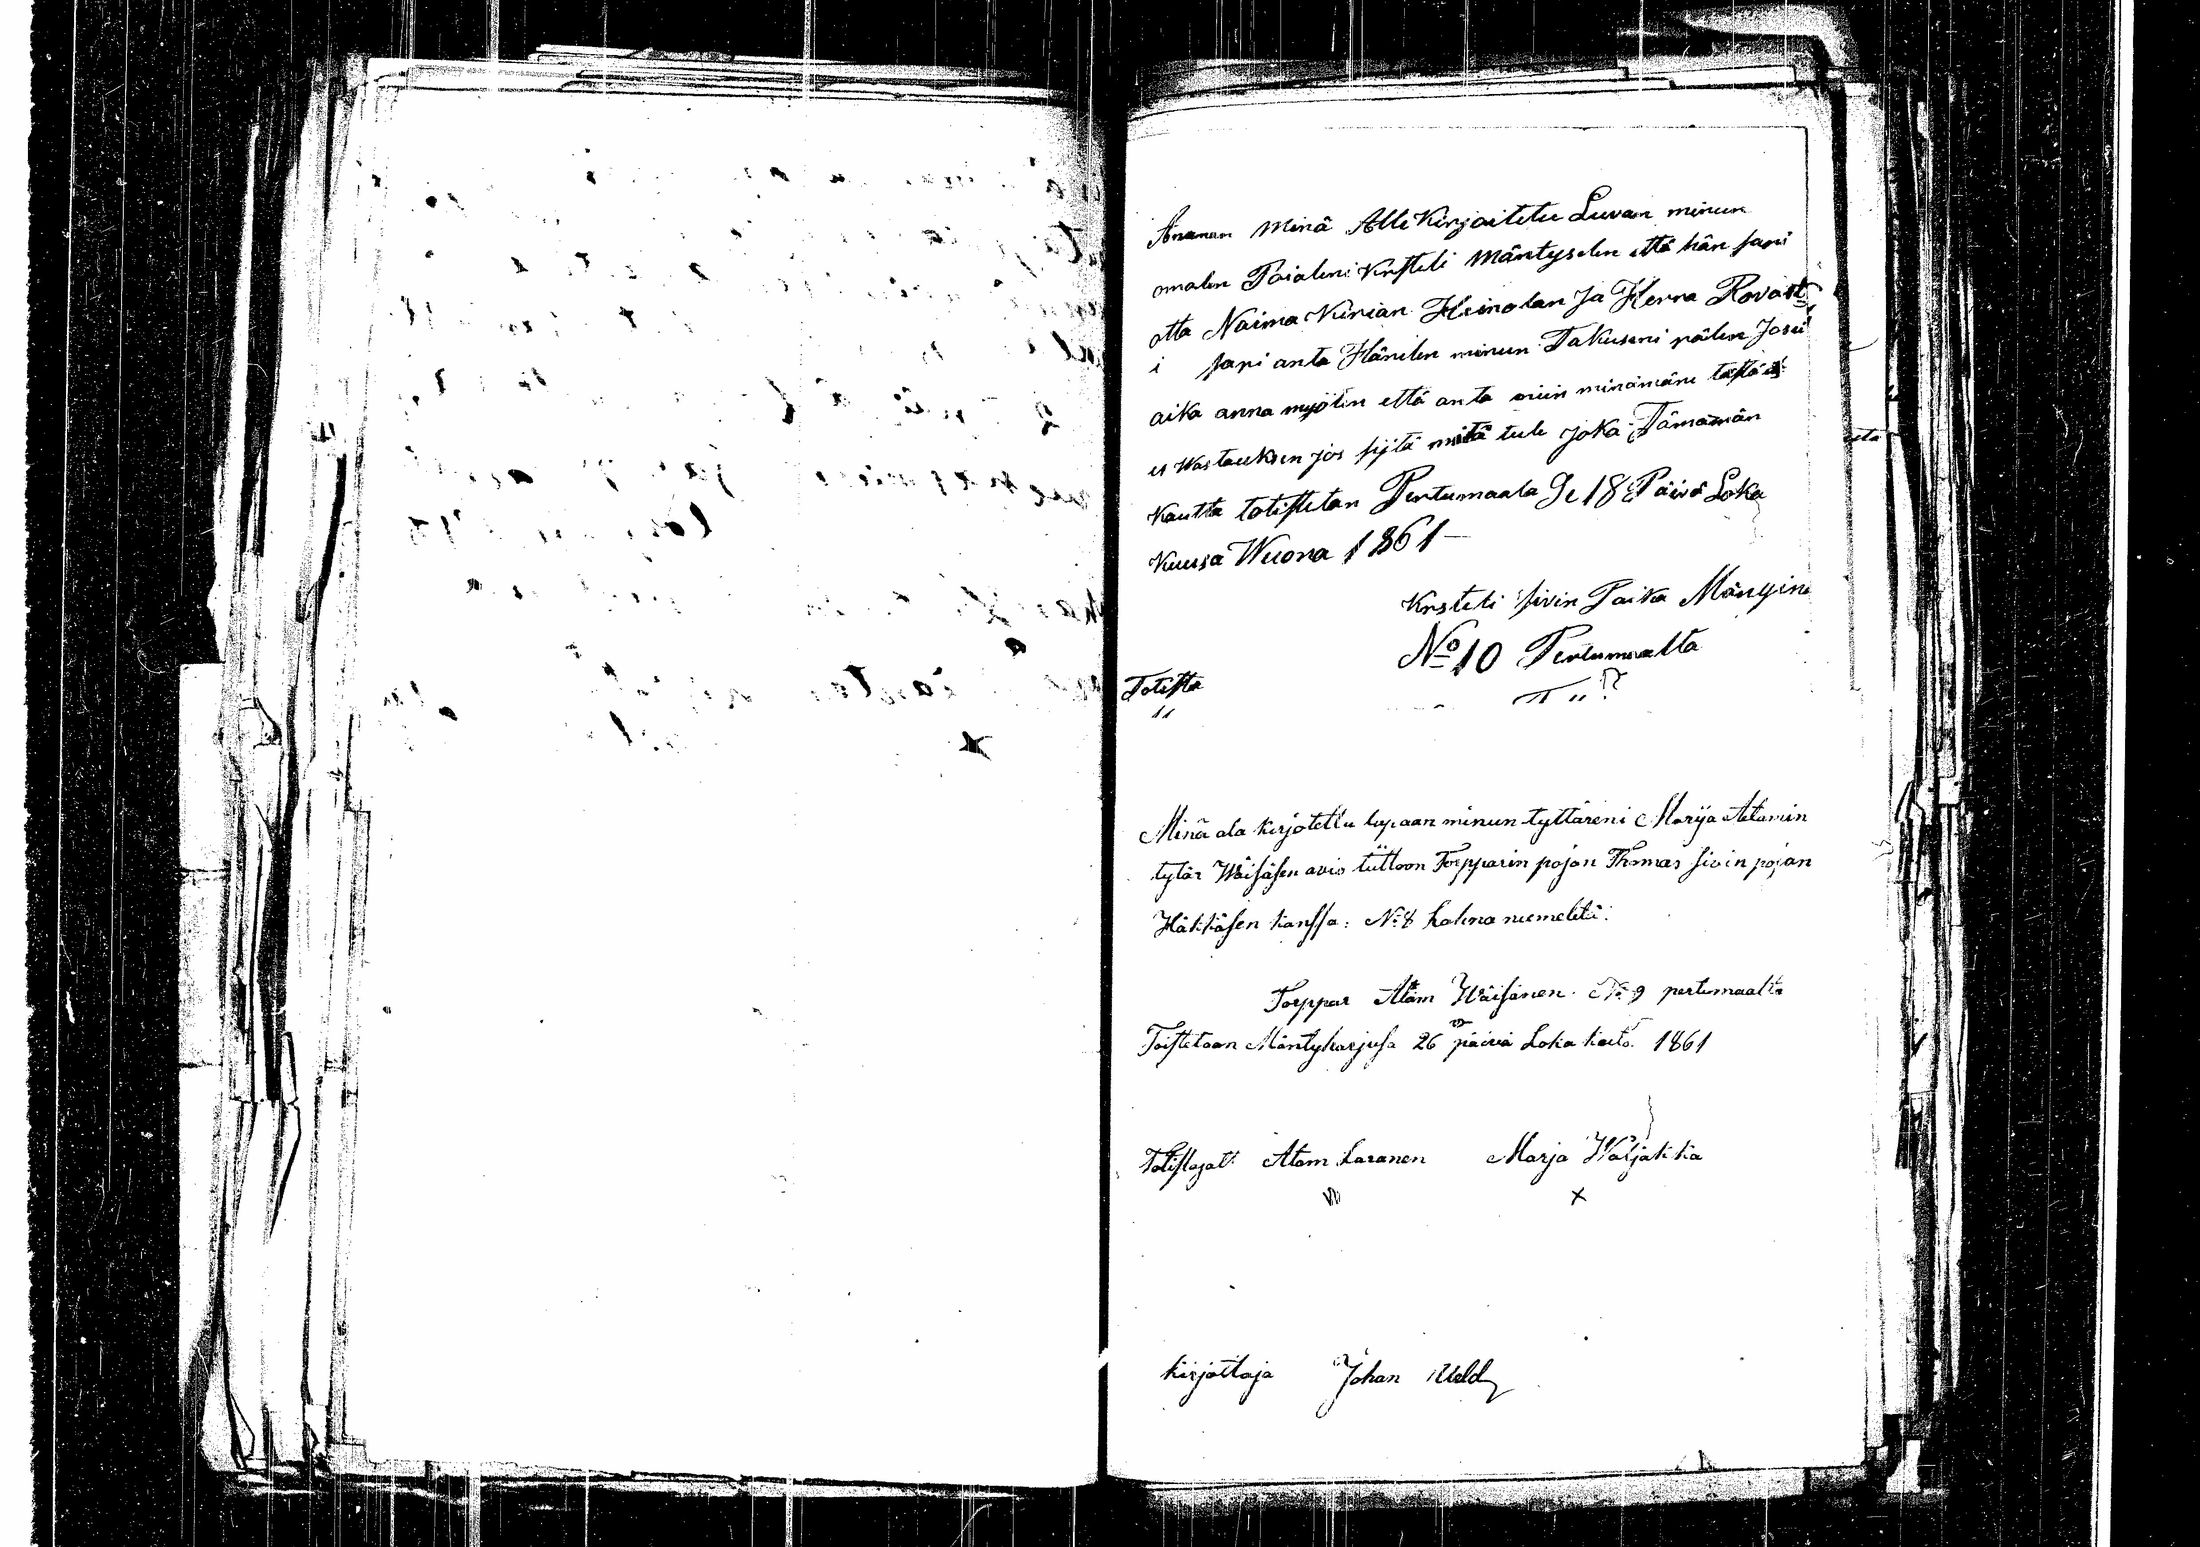 Annan minä Alle Kirjoitetu Luvan minun
omalen Poialeni Kristeli Mäntyselen että hän sapi
otta Naima Kirian Heinolan Ja Herra Rovast
i sapi anta Hänelen minun Takuseni päilen Josei
aika anna myöten että anta niin minämäne tästä
es Wastauksen jos sijtä mitä tule Joka Tämämän
Kautta totistetan Pertumaala De 18 Päivä Loka
Kuusa Wuona 1861
Kristeli sivin Poika Mänginen
No 10 Pertumaalta
Totista
Minä ala kirjotettu lupaan minun tyttäreni Marija Atamin
tytär Wäisäsen avio tüttoon Torpparin pojan Thomas sivin pojan
Häkkäsen kanssa: No 8 kalna niemeltä:
Torppar Atam Wäisänen No 9 pertumaalta
Toistetaan Mäntyharjusa 26 päivä Loka kuuta 1861
Totistajatt Atam Laranen Marja Warjakka
x
kirjottaja Johan Ueld